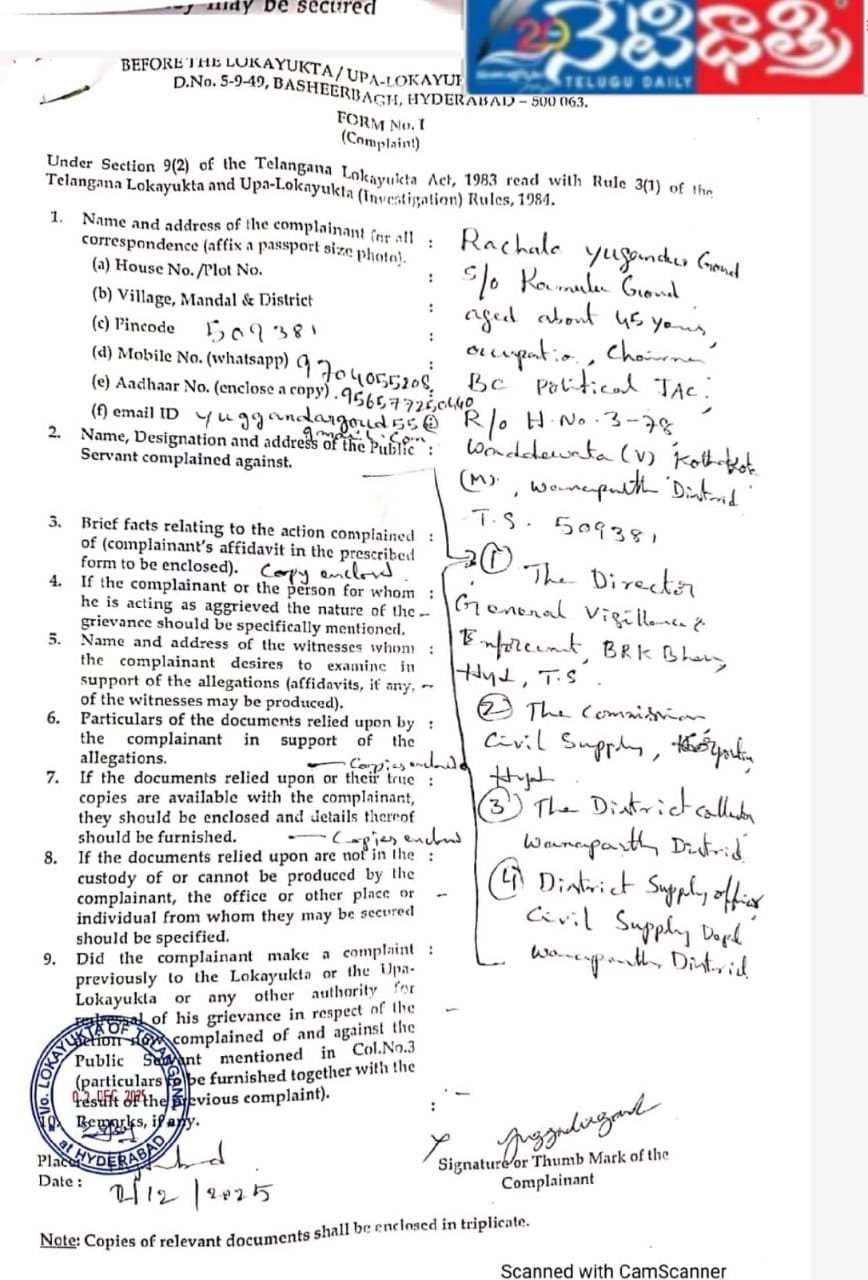 be secured
20
నేటిధాత్రి
TELUGU DAILY
BEFORE THE LOKAYUKTA / UPA-LOKAYU
D.No. 5-9-49, BASHEERBAGH, HYDERABAD – 500 063.
FORM No. I
(Complaint)
Under Section 9(2) of the Telangana Lokayukta Act, 1983 read with Rule 3(1) of the
Telangana Lokayukta and Upa-Lokayukta (Investigation) Rules, 1984.
1. Name and address of the complainant for all :
correspondence (affix a passport size photo).
(a) House No. /Plot No. :
(b) Village, Mandal & District :
(c) Pincode 509381 :
(d) Mobile No. (whatsapp) 9704055208 :
(e) Aadhaar No. (enclose a copy) .
(f) email ID
gmail.com
Rachala Yugandar Goud
S/o Goud
aged about 45 years,
occupatio, Chairman
BC Political JAC.
R/o H.No. 3-78
(V)
(M), Distrid
T.S. 509381
2. Name, Designation and address of the Public :
Servant complained against.
① The Director
General Vigillance &
Enforcemt, BRK
Hyd, T.S
② The
Civil Supply,
Hyd
③ The District
Distrid
④ District Supply officer
Civil Supply
Distrid
3. Brief facts relating to the action complained :
of (complainant's affidavit in the prescribed
form to be enclosed). Copy enclosed
4. If the complainant or the person for whom :
he is acting as aggrieved the nature of the –
grievance should be specifically mentioned.
5. Name and address of the witnesses whom :
the complainant desires to examine in
support of the allegations (affidavits, if any, –
of the witnesses may be produced).
6. Particulars of the documents relied upon by :
the complainant in support of the
allegations. — Copies enclosed
7. If the documents relied upon or their true :
copies are available with the complainant,
they should be enclosed and details thereof
should be furnished. — Copies enclosed
8. If the documents relied upon are not in the :
custody of or cannot be produced by the
complainant, the office or other place or –
individual from whom they may be secured
should be specified.
9. Did the complainant make a complaint :
previously to the Lokayukta or the Upa-
Lokayukta or any other authority for
redressal of his grievance in respect of the –
action now complained of and against the
Public Servant mentioned in Col.No.3
(particulars to be furnished together with the
result of the previous complaint).
10. Remarks, if any. : –
LOKAYUKTA OF TELANGANA
02 DEC 2025
at HYDERABAD
Place
Date : 2/12/2025
X
Signature or Thumb Mark of the
Complainant
Note: Copies of relevant documents shall be enclosed in triplicate.
Scanned with CamScanner